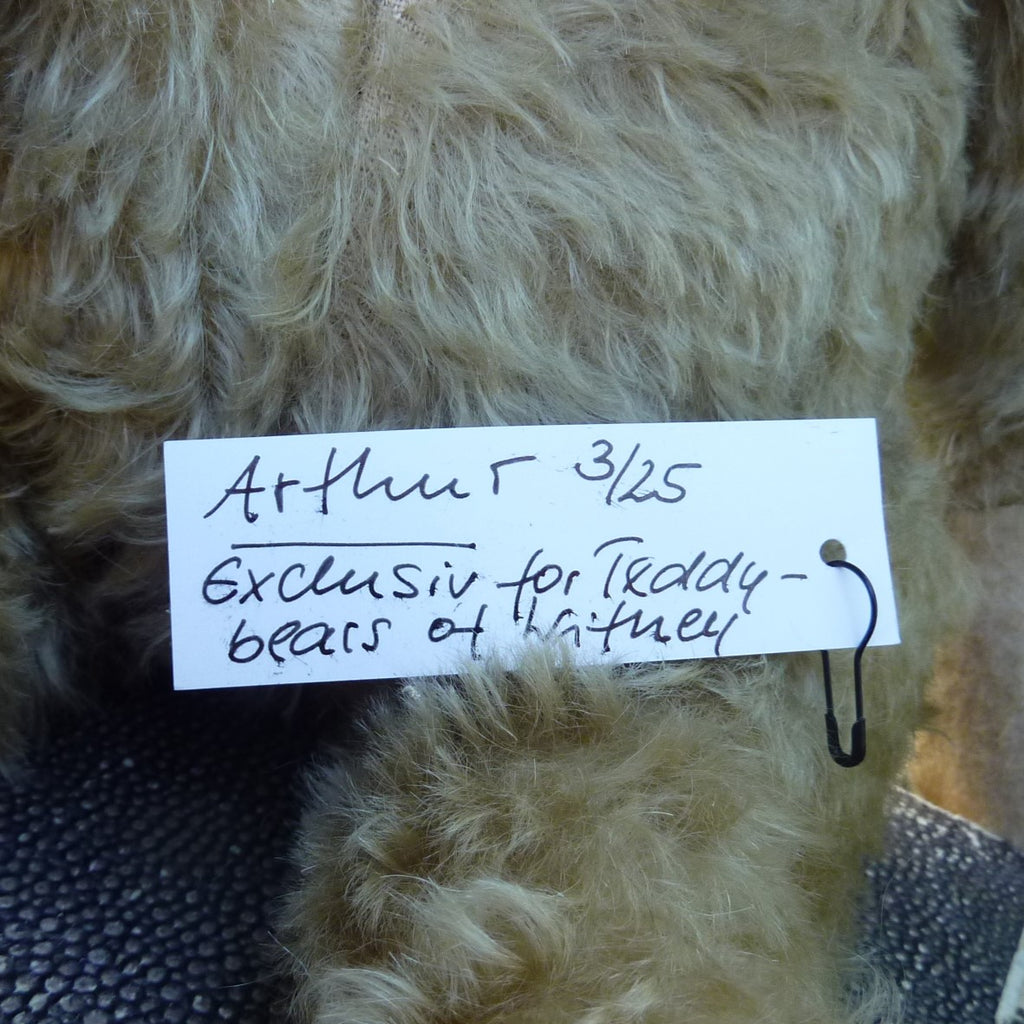 Arthur 3/25
Exclusiv for Teddy-
bears of Witney